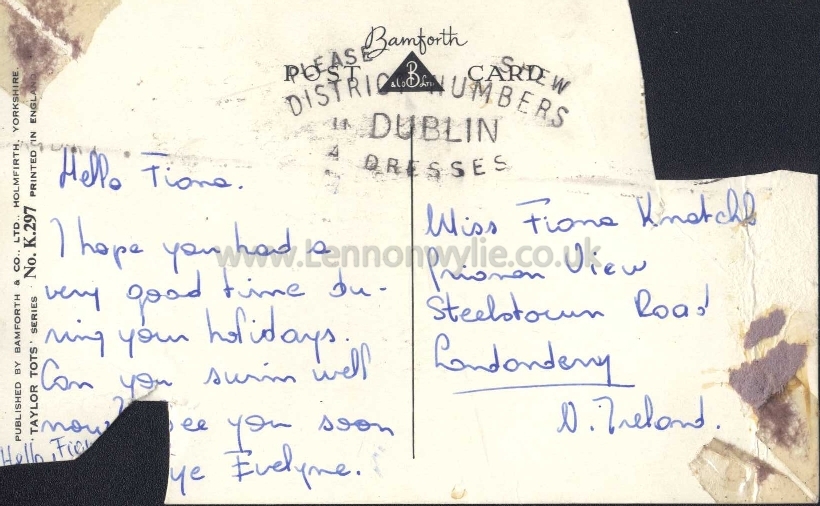 Bamforth
POST CARD
& Co B Ltd
PLEASE SHEW
DISTRICT NUMBERS
DUBLIN
DRESSES
PUBLISHED BY BAMFORTH & CO., LTD., HOLMFIRTH, YORKSHIRE.
'TAYLOR TOTS' SERIES No. K.297 PRINTED IN ENGLAND
Hello Fiona.
I hope you had a
very good time du-
ring your holidays.
Can you swim well
now? see you soon
ye Evelyne.
Hello, Fion
Miss Fiona Knatchb
Prionen View
Steelstown Road
Londonderry
N. Ireland.
www.Lennonwylie.co.uk